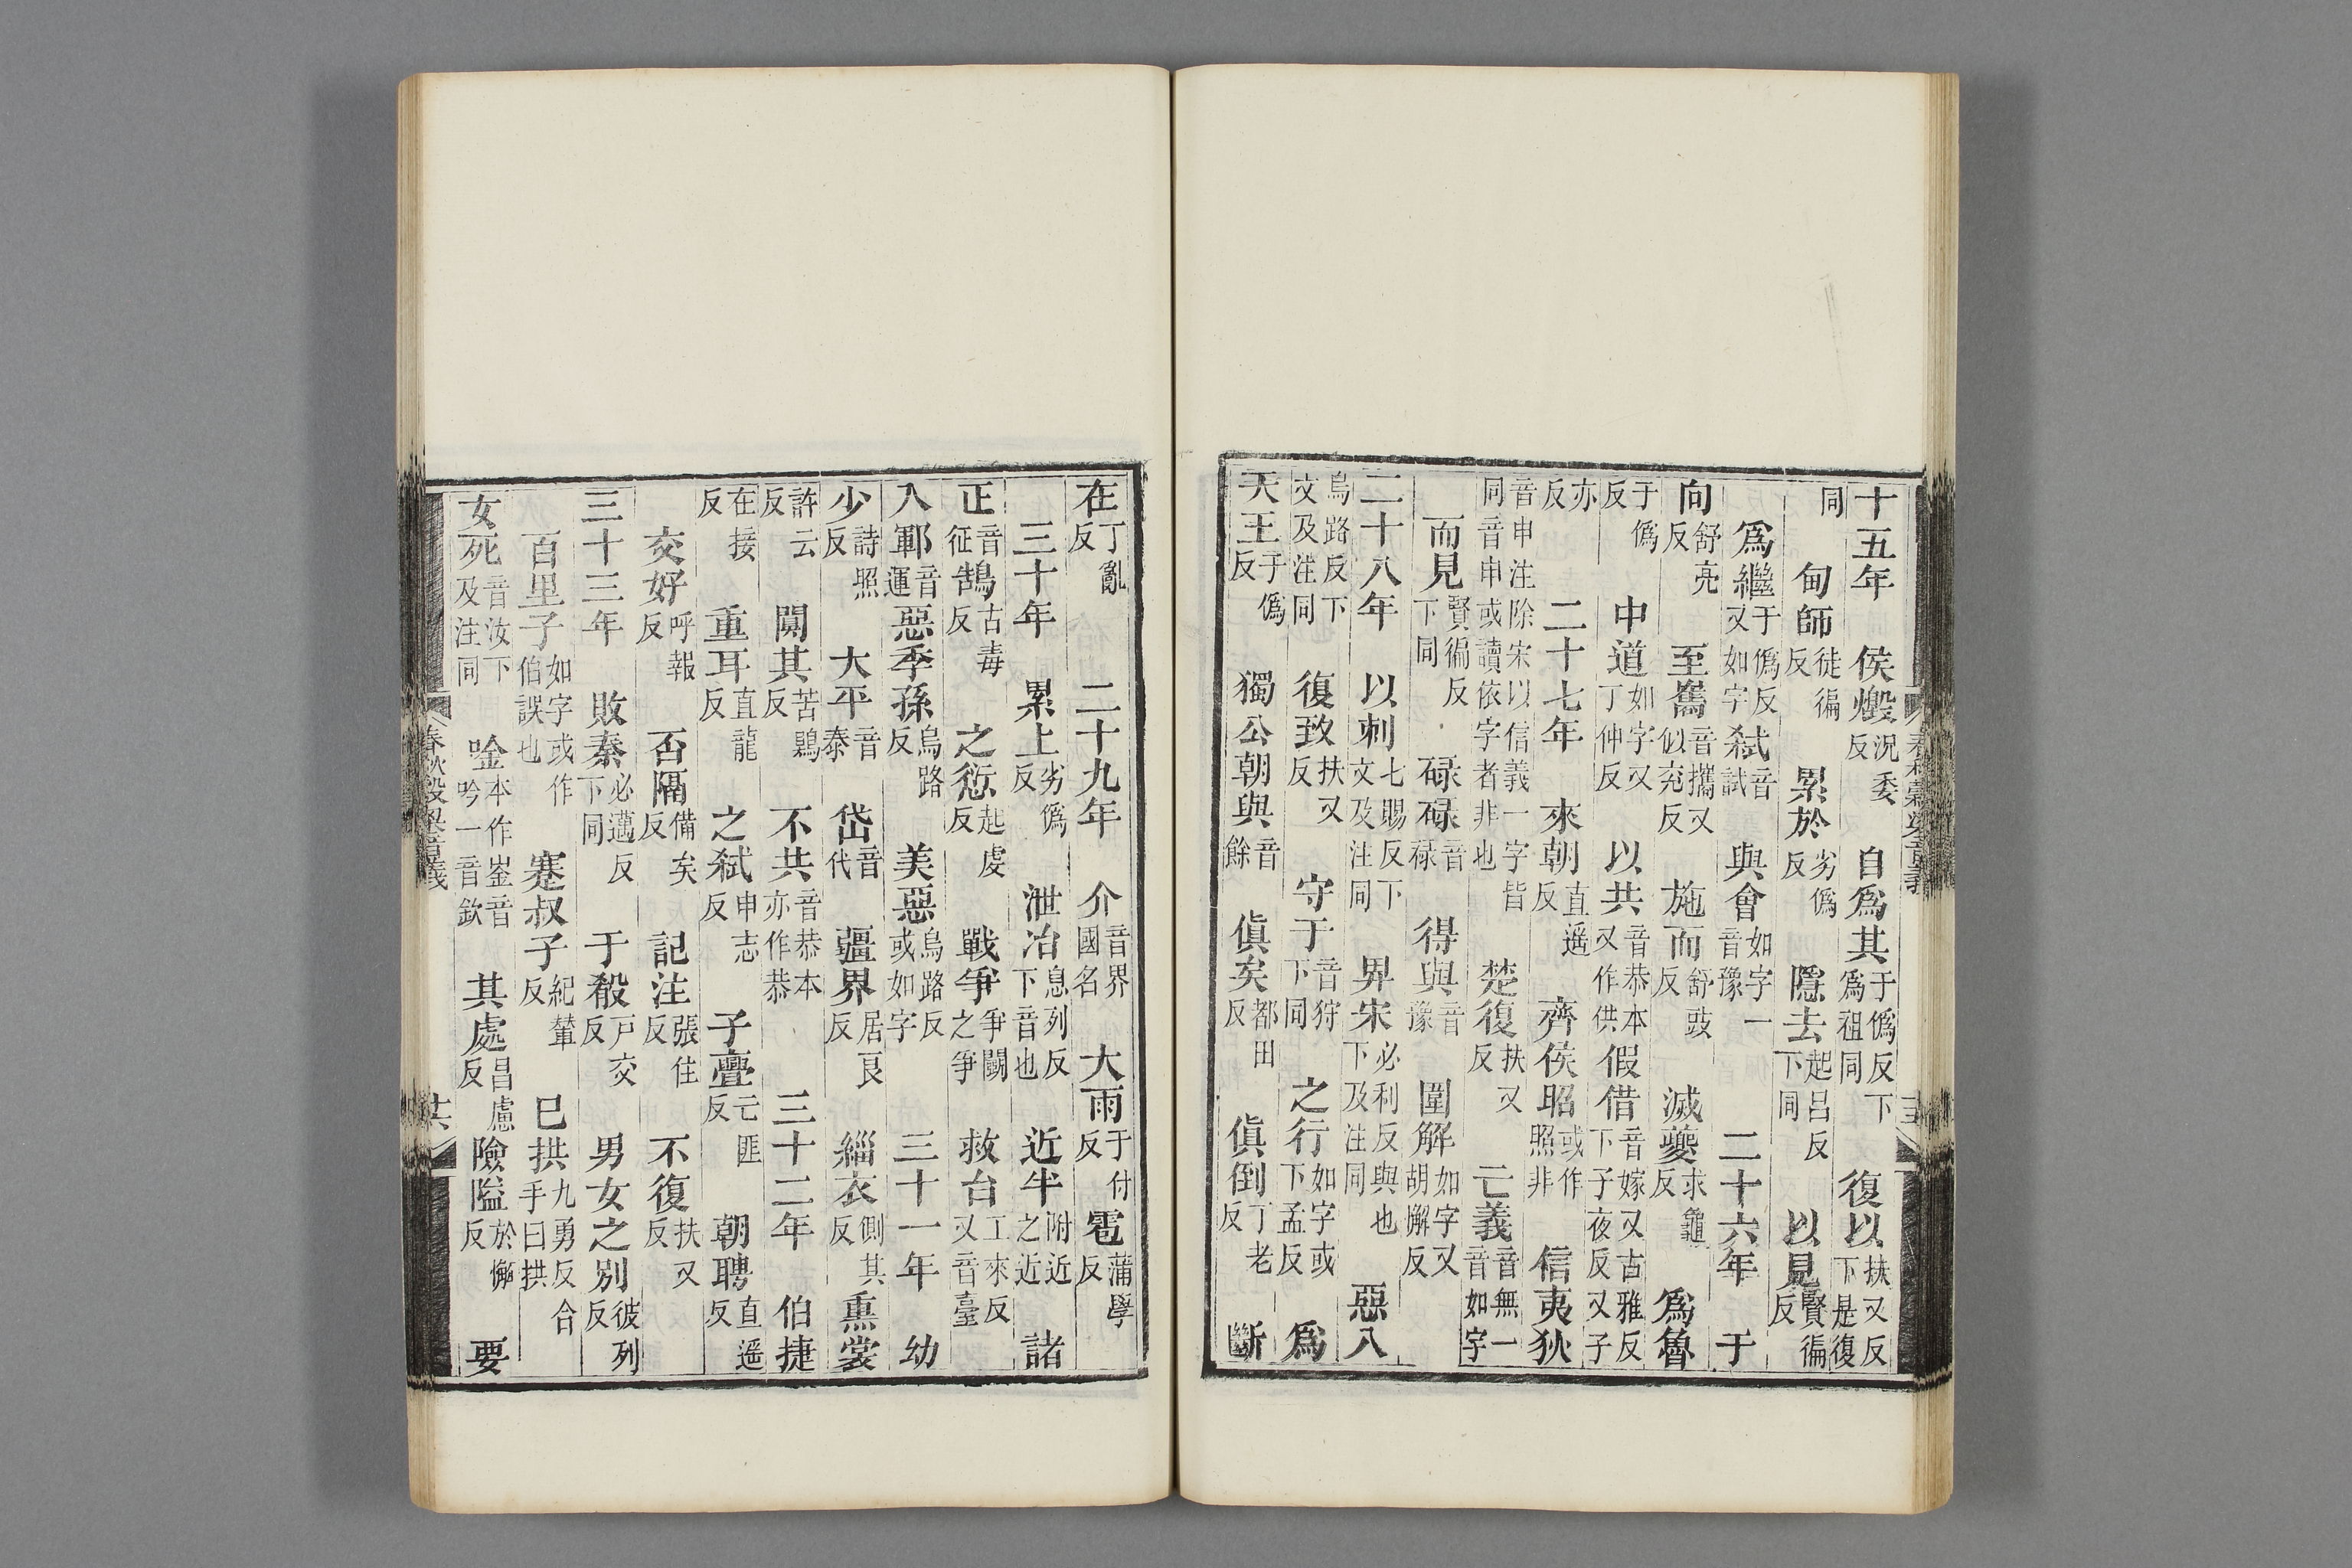 春秋穀梁音義
十五年 侯燬況委反 自爲其于僞反下爲祖同 復以扶又反下是復
同 甸師徒徧反 累於劣僞反 隱去起呂反下同 以見賢徧反
爲繼于僞反又如字 弑音試 與會如字一音豫 二十六年 于
向舒亮反 至巂音攜又似兖反 施而舒豉反 滅夔求龜反 爲魯
于僞反 中道如字又丁仲反 以共音恭本又作供 假借音嫁又古雅反下子夜反又子
亦反 二十七年 來朝直遥反 齊侯昭或作照非 信夷狄
音申注除宋以信義一字皆同音申或讀依字者非也 楚復扶又反 亡義音無一音如字
而見賢徧反下同 碌碌音禄 得與音豫 圍解如字又胡懈反
二十八年 以刺七賜反下文及注同 畀宋必利反與也下及注同 惡入
烏路反下文及注同 復致扶又反 守于音狩下同 之行如字或下孟反 爲
天王于僞反 獨公朝與音餘 傎矣都田反 傎倒丁老反 斷
在丁亂反 二十九年 介音界國名 大雨于付反 雹蒲學反
三十年 累上劣僞反 泄冶息列反下音也 近半附近之近 諸
正音征 鵠古毒反 之愆起虔反 戰爭爭鬭之爭 救台工來反又音臺
入鄆音運 惡季孫烏路反 美惡烏路反或如字 三十一年 幼
少詩照反 大平音泰 岱音代 疆界居良反 緇衣側其反 熏裳
許云反 闃其苦鶪反 不共音恭本亦作恭 三十二年 伯捷
在接反 重耳直龍反 之弑申志反 子亹亡匪反 朝聘直遥反
交好呼報反 否隔備矣反 記注張住反 不復扶又反
三十三年 敗秦必邁反下同 于殽戸交反 男女之别彼列反
百里子如字或作伯誤也 蹇叔子紀輦反 已拱九勇反合手曰拱
女死音汝下及注同 唫本作崟音吟一音欽 其處昌慮反 險隘於懈反 要
春秋穀梁音義 十六